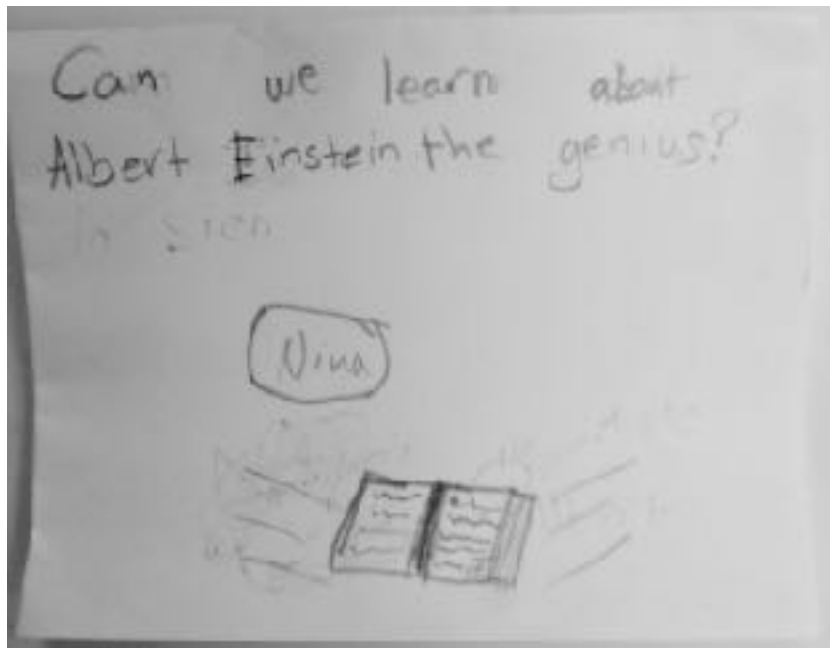 Can we learn about
Albert Einstein the genius?
in scien
Nina